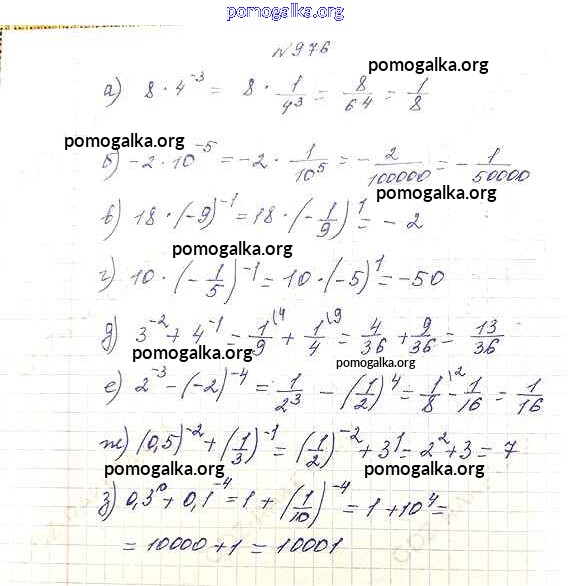 pomogalka.org
№976
pomogalka.org
а) 8 · 4⁻³ = 8 · 1/4³ = 8/64 = 1/8
pomogalka.org
б) -2 · 10⁻⁵ = -2 · 1/10⁵ = - 2/100000 = - 1/50000
pomogalka.org
в) 18 · (-9)⁻¹ = 18 · (-1/9)¹ = - 2
pomogalka.org
г) 10 · (-1/5)⁻¹ = 10 · (-5)¹ = -50
pomogalka.org
д) 3⁻² + 4⁻¹ = 1/9 \4 + 1/4 \9 = 4/36 + 9/36 = 13/36
pomogalka.org pomogalka.org
е) 2⁻³ - (-2)⁻⁴ = 1/2³ - (1/2)⁴ = 1/8 \2 - 1/16 = 1/16
pomogalka.org pomogalka.org
ж) (0,5)⁻² + (1/3)⁻¹ = (1/2)⁻² + 3¹ = 2² + 3 = 7
pomogalka.org pomogalka.org
з) 0,3⁰ + 0,1⁻⁴ = 1 + (1/10)⁻⁴ = 1 + 10⁴ =
= 10000 + 1 = 10001